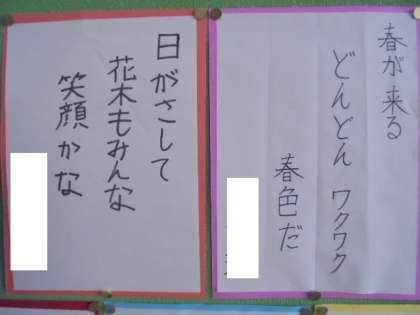 春が来る
どんどん ワクワク
春色だ
日がさして
花木もみんな
笑顔かな